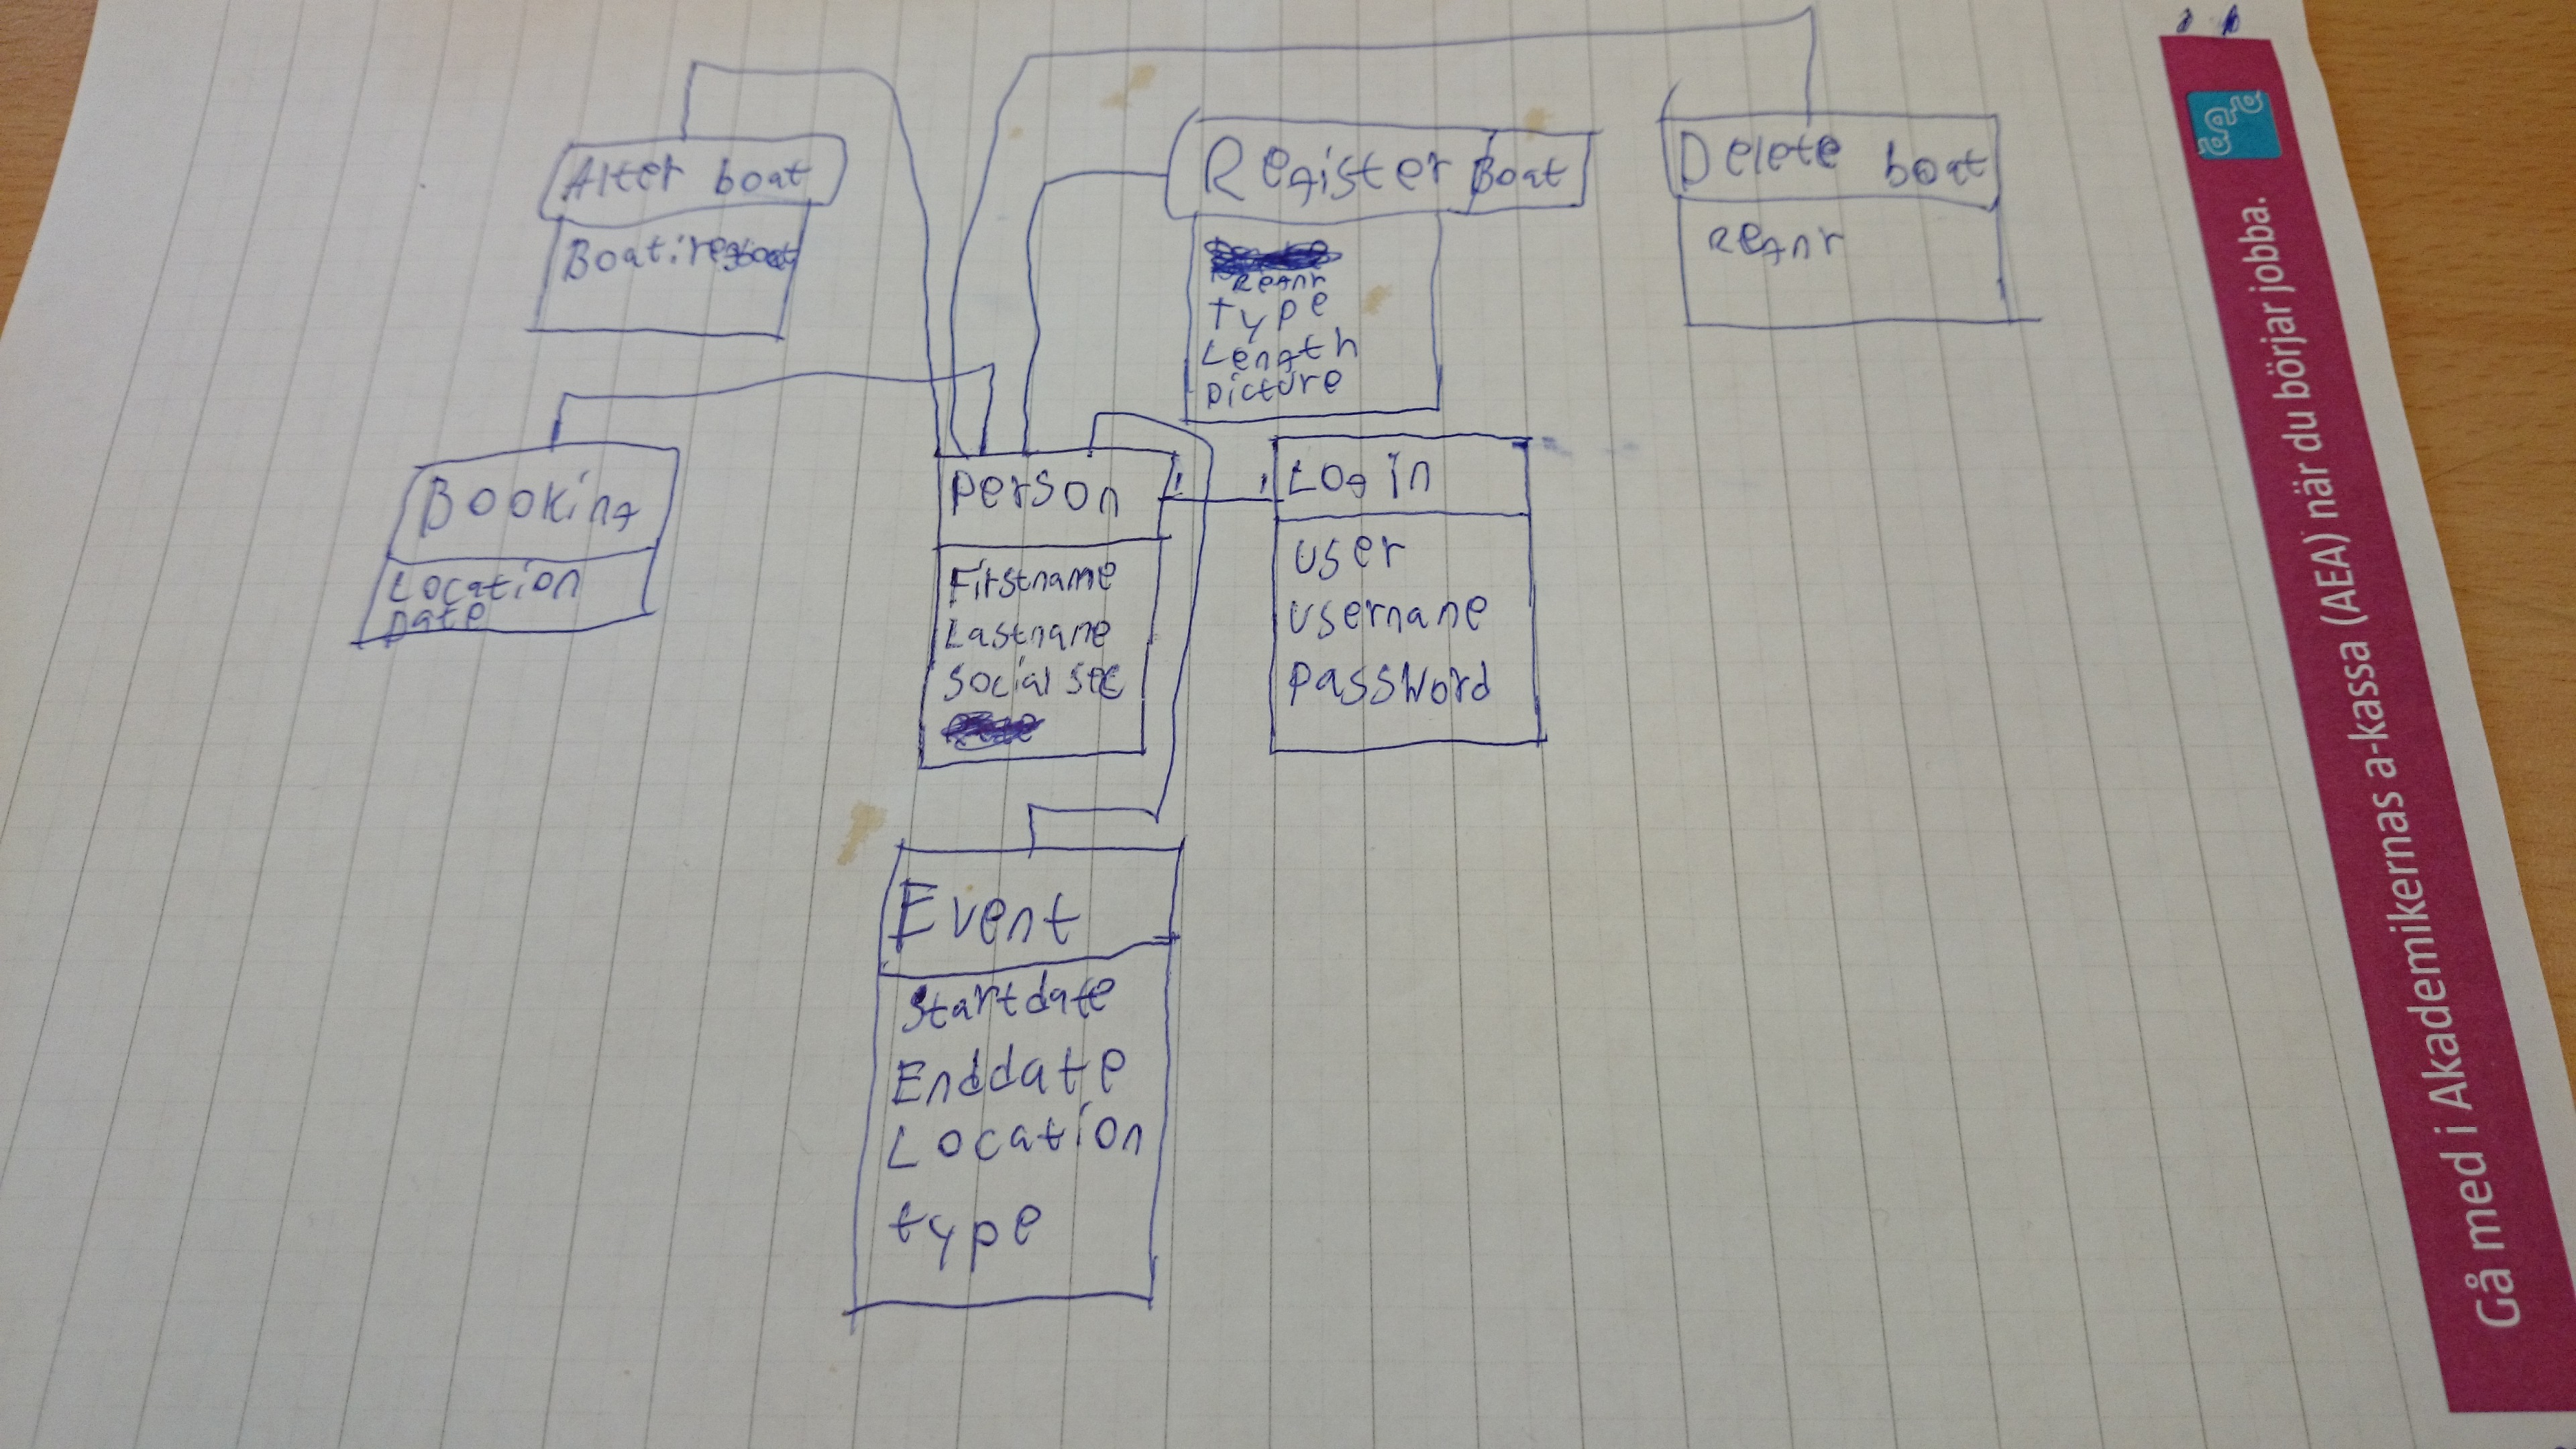 Alter boat
Register Boat
Delete boat
Regnr
Regnr
Type
Length
Picture
Booking
Location
Date
Person
Firstname
Lastname
Social sec
1 1
Log in
User
Username
Password
Event
Startdate
Enddate
Location
type
Gå med i Akademikernas a-kassa (AEA) när du börjar jobba.